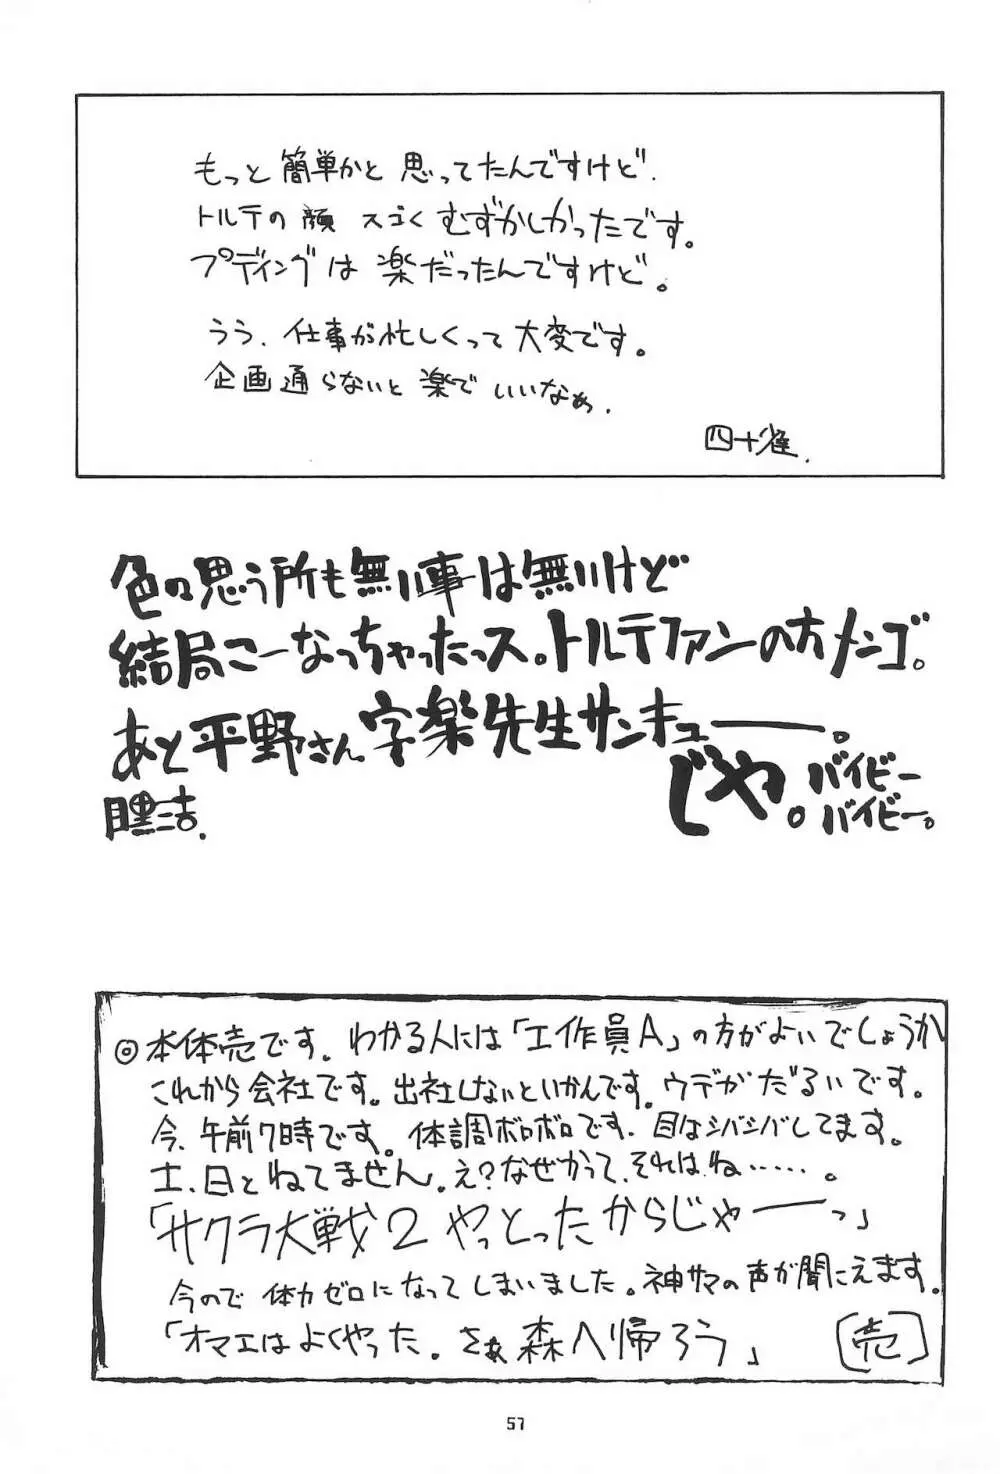 もっと簡単かと思ってたんですけど.
トルテの顔 スゴくむずかしかったです。
プディングは楽だったんですけど。
うう、仕事が忙しくって大変です。
企画通らないと楽でいいなぁ.
四十雀.
色々思う所も無い事は無いけど
結局こーなっちゃったっス。トルテファンの方メンゴ。
あと平野さん字楽先生サンキュー――。
じゃ。バイビー
バイビー。
◎本体売です。わかる人には「工作員A」の方がよいでしょうか
これから会社です。出社しないといかんです。ウデがだるいです。
今、午前7時です。体調ボロボロです. 目はシバシバしてます。
土、日とねてません。え?なぜかって、それは、ね……。
「サクラ大戦2やっとったからじゃーーっ」
今ので体力ゼロになってしまいました。神サマの声が聞こえます.
「オマエはよくやった。さぁ森へ帰ろう」
〔売〕
57